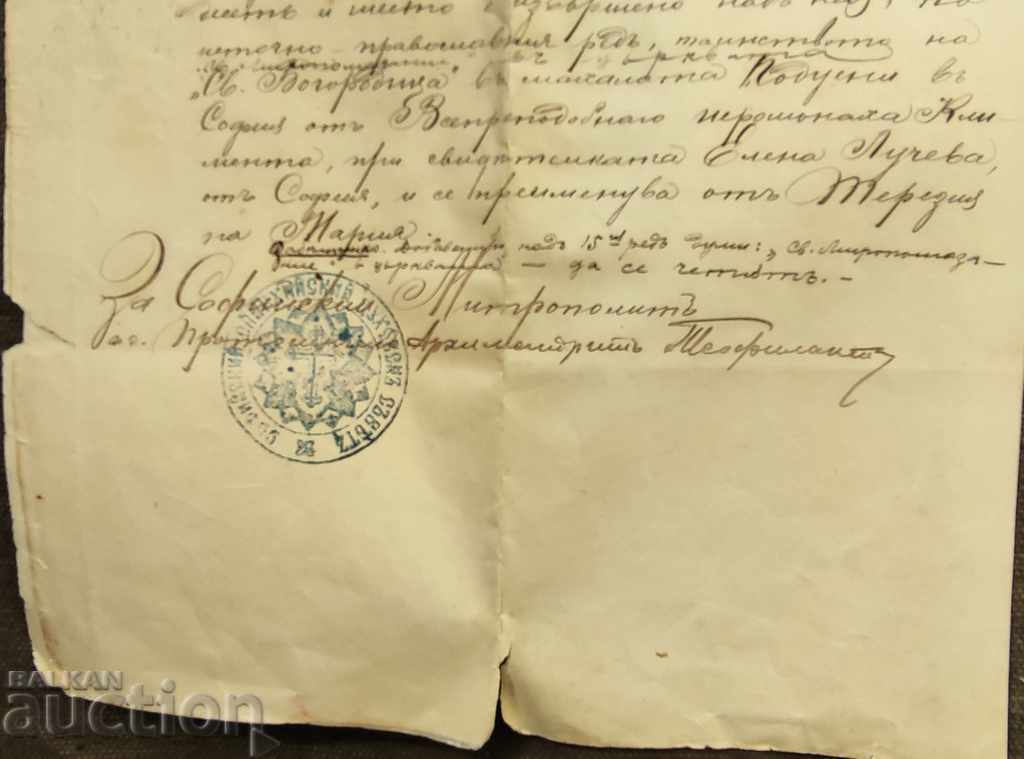 и извършено надъ
источно-православния редъ, таинството на
"Св. Миропомазание", въ църквата
"Св. Богородица" въ махалата Подуени въ
София отъ Всепреподобнаго иеромонаха Кли-
мента, при свидетелката Елена Лучева,
отъ София, и се преименува отъ Терезия
на Мария.
надъ 15ий редъ думи: "Св. Миропомаза-
ние" и църквата — да се четѫтъ. —
За Софийский Митрополитъ
Архимандритъ Теофилактъ
СЪВѢТЪ
BALKAN
auction